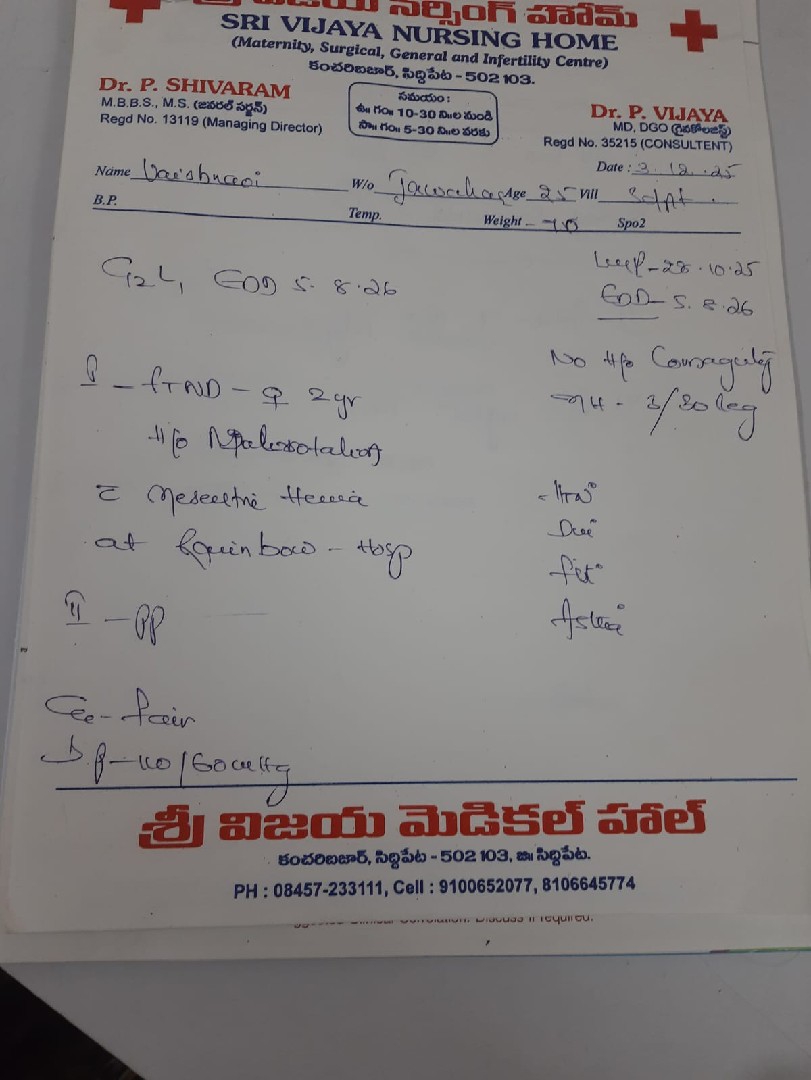 శ్రీ విజయ నర్సింగ్ హోమ్
SRI VIJAYA NURSING HOME
(Maternity, Surgical, General and Infertility Centre)
కంచరిబజార్, సిద్దిపేట - 502 103.
Dr. P. SHIVARAM
M.B.B.S., M.S. (జనరల్ సర్జన్)
Regd No. 13119 (Managing Director)
సమయం :
ఉ॥ గం॥ 10-30 ని॥ల నుండి
సా॥ గం॥ 5-30 ని॥ల వరకు
Dr. P. VIJAYA
MD, DGO (గైనకాలజిస్ట్)
Regd No. 35215 (CONSULTENT)
Date : 3.12.25
Name Vaishnavi W/o Age 25 Vill Sdpt.
B.P. Temp. Weight - Spo2
G2L1 EDD 5.8.26
LMP-28.10.25
EDD- 5.8.26
I - FTND - ♀ 2yr
H/o Malrotation
at Rainbow - Hosp
II - PP
No H/o
MH - 3/30
GC - fair
BP-110/60mmHg
శ్రీ విజయ మెడికల్ హాల్
కంచరిబజార్, సిద్దిపేట - 502 103, జి॥ సిద్దిపేట.
PH : 08457-233111, Cell : 9100652077, 8106645774
Discuss if required.